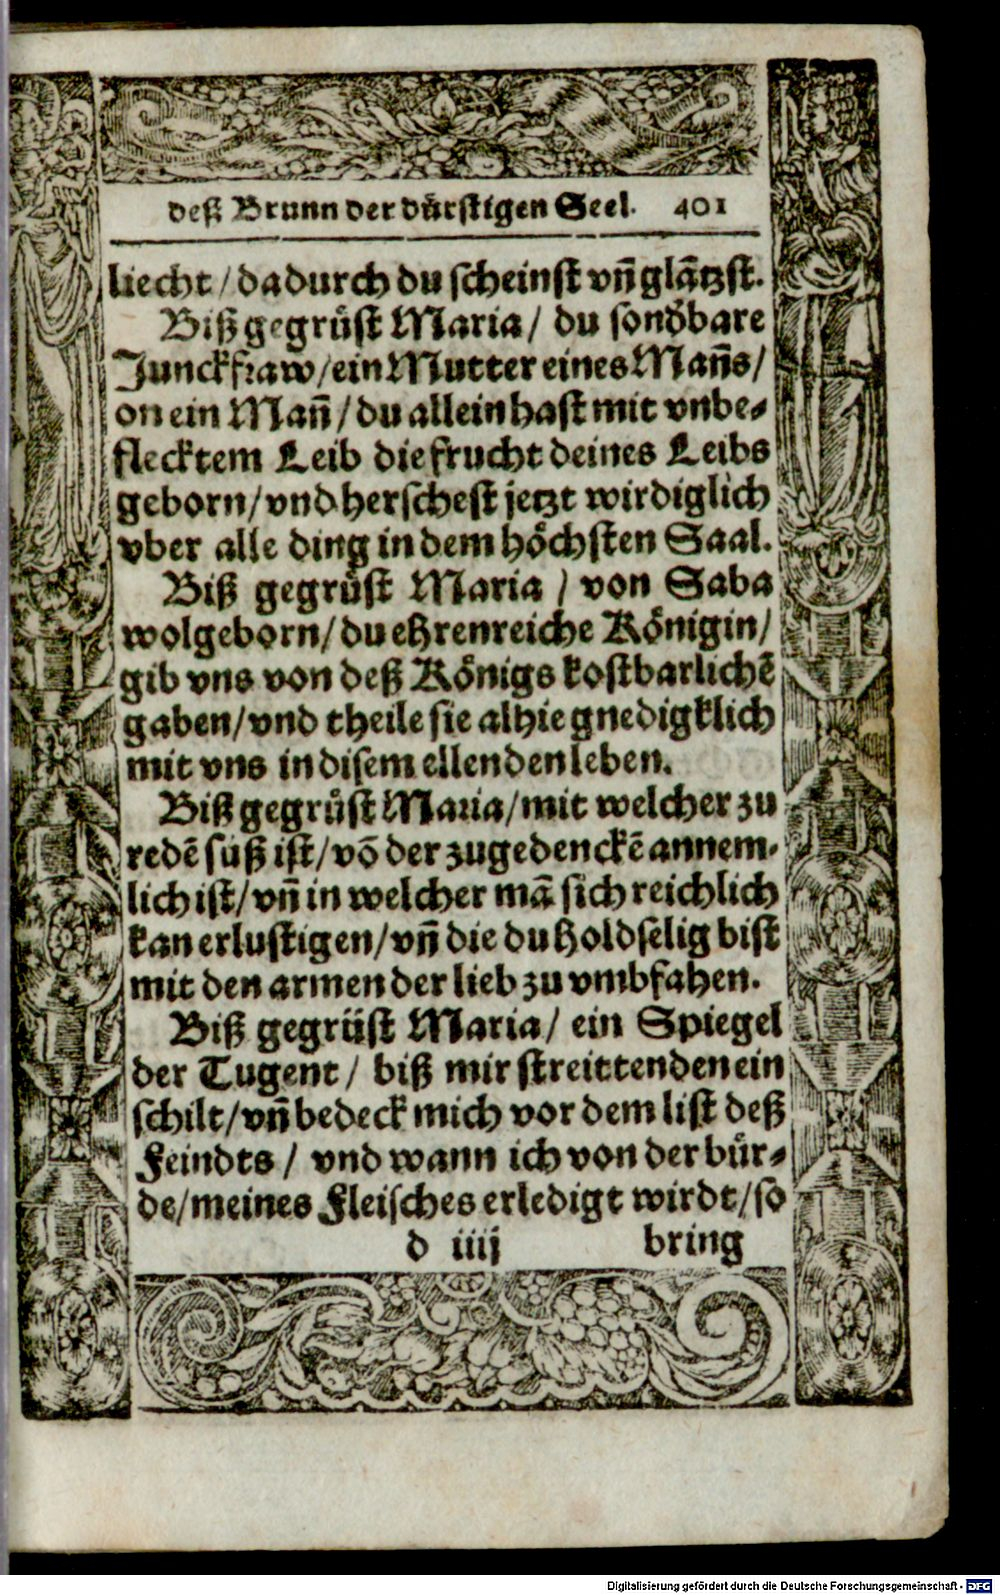 deß Brunn der dürstigen Seel. 401
liecht / dadurch du scheinst vñ glãtzst.
Biß gegrüst Maria / du sonďbare
Junckfraw / ein Mutter eines Mañs /
on ein Mañ / du allein hast mit vnbe-
flecktem Leib die frucht deines Leibs
geborn / vnd herschest jetzt wirdiglich
vber alle ding in dem höchsten Saal.
Biß gegrüst Maria / von Saba
wolgeborn / du ehrenreiche Königin /
gib vns von deß Königs kostbarlichẽ
gaben / vnd theile sie alhie gnedigklich
mit vns in disem ellenden leben.
Biß gegrüst Maria / mit welcher zu
redẽ süß ist / võ der zugedenckẽ annem-
lich ist / vñ in welcher mã sich reichlich
kan erlustigen / vñ die du holdselig bist
mit den armen der lieb zu vmbfahen.
Biß gegrüst Maria / ein Spiegel
der Tugent / biß mir streittenden ein
schilt / vñ bedeck mich vor dem list deß
Feindts / vnd wann ich von der bür-
de / meines Fleisches erledigt wirdt / so
d iiij bring
Digitalisierung gefördert durch die Deutsche Forschungsgemeinschaft - DFG